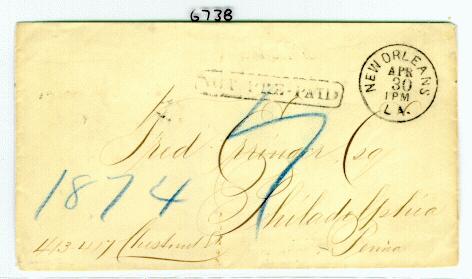 6738
NOT PRE-PAID
NEW ORLEANS
APR
30
1PM
LA.
Fred Esq
7
1874
Philadelphia
413.417 Chestnut St
Penna